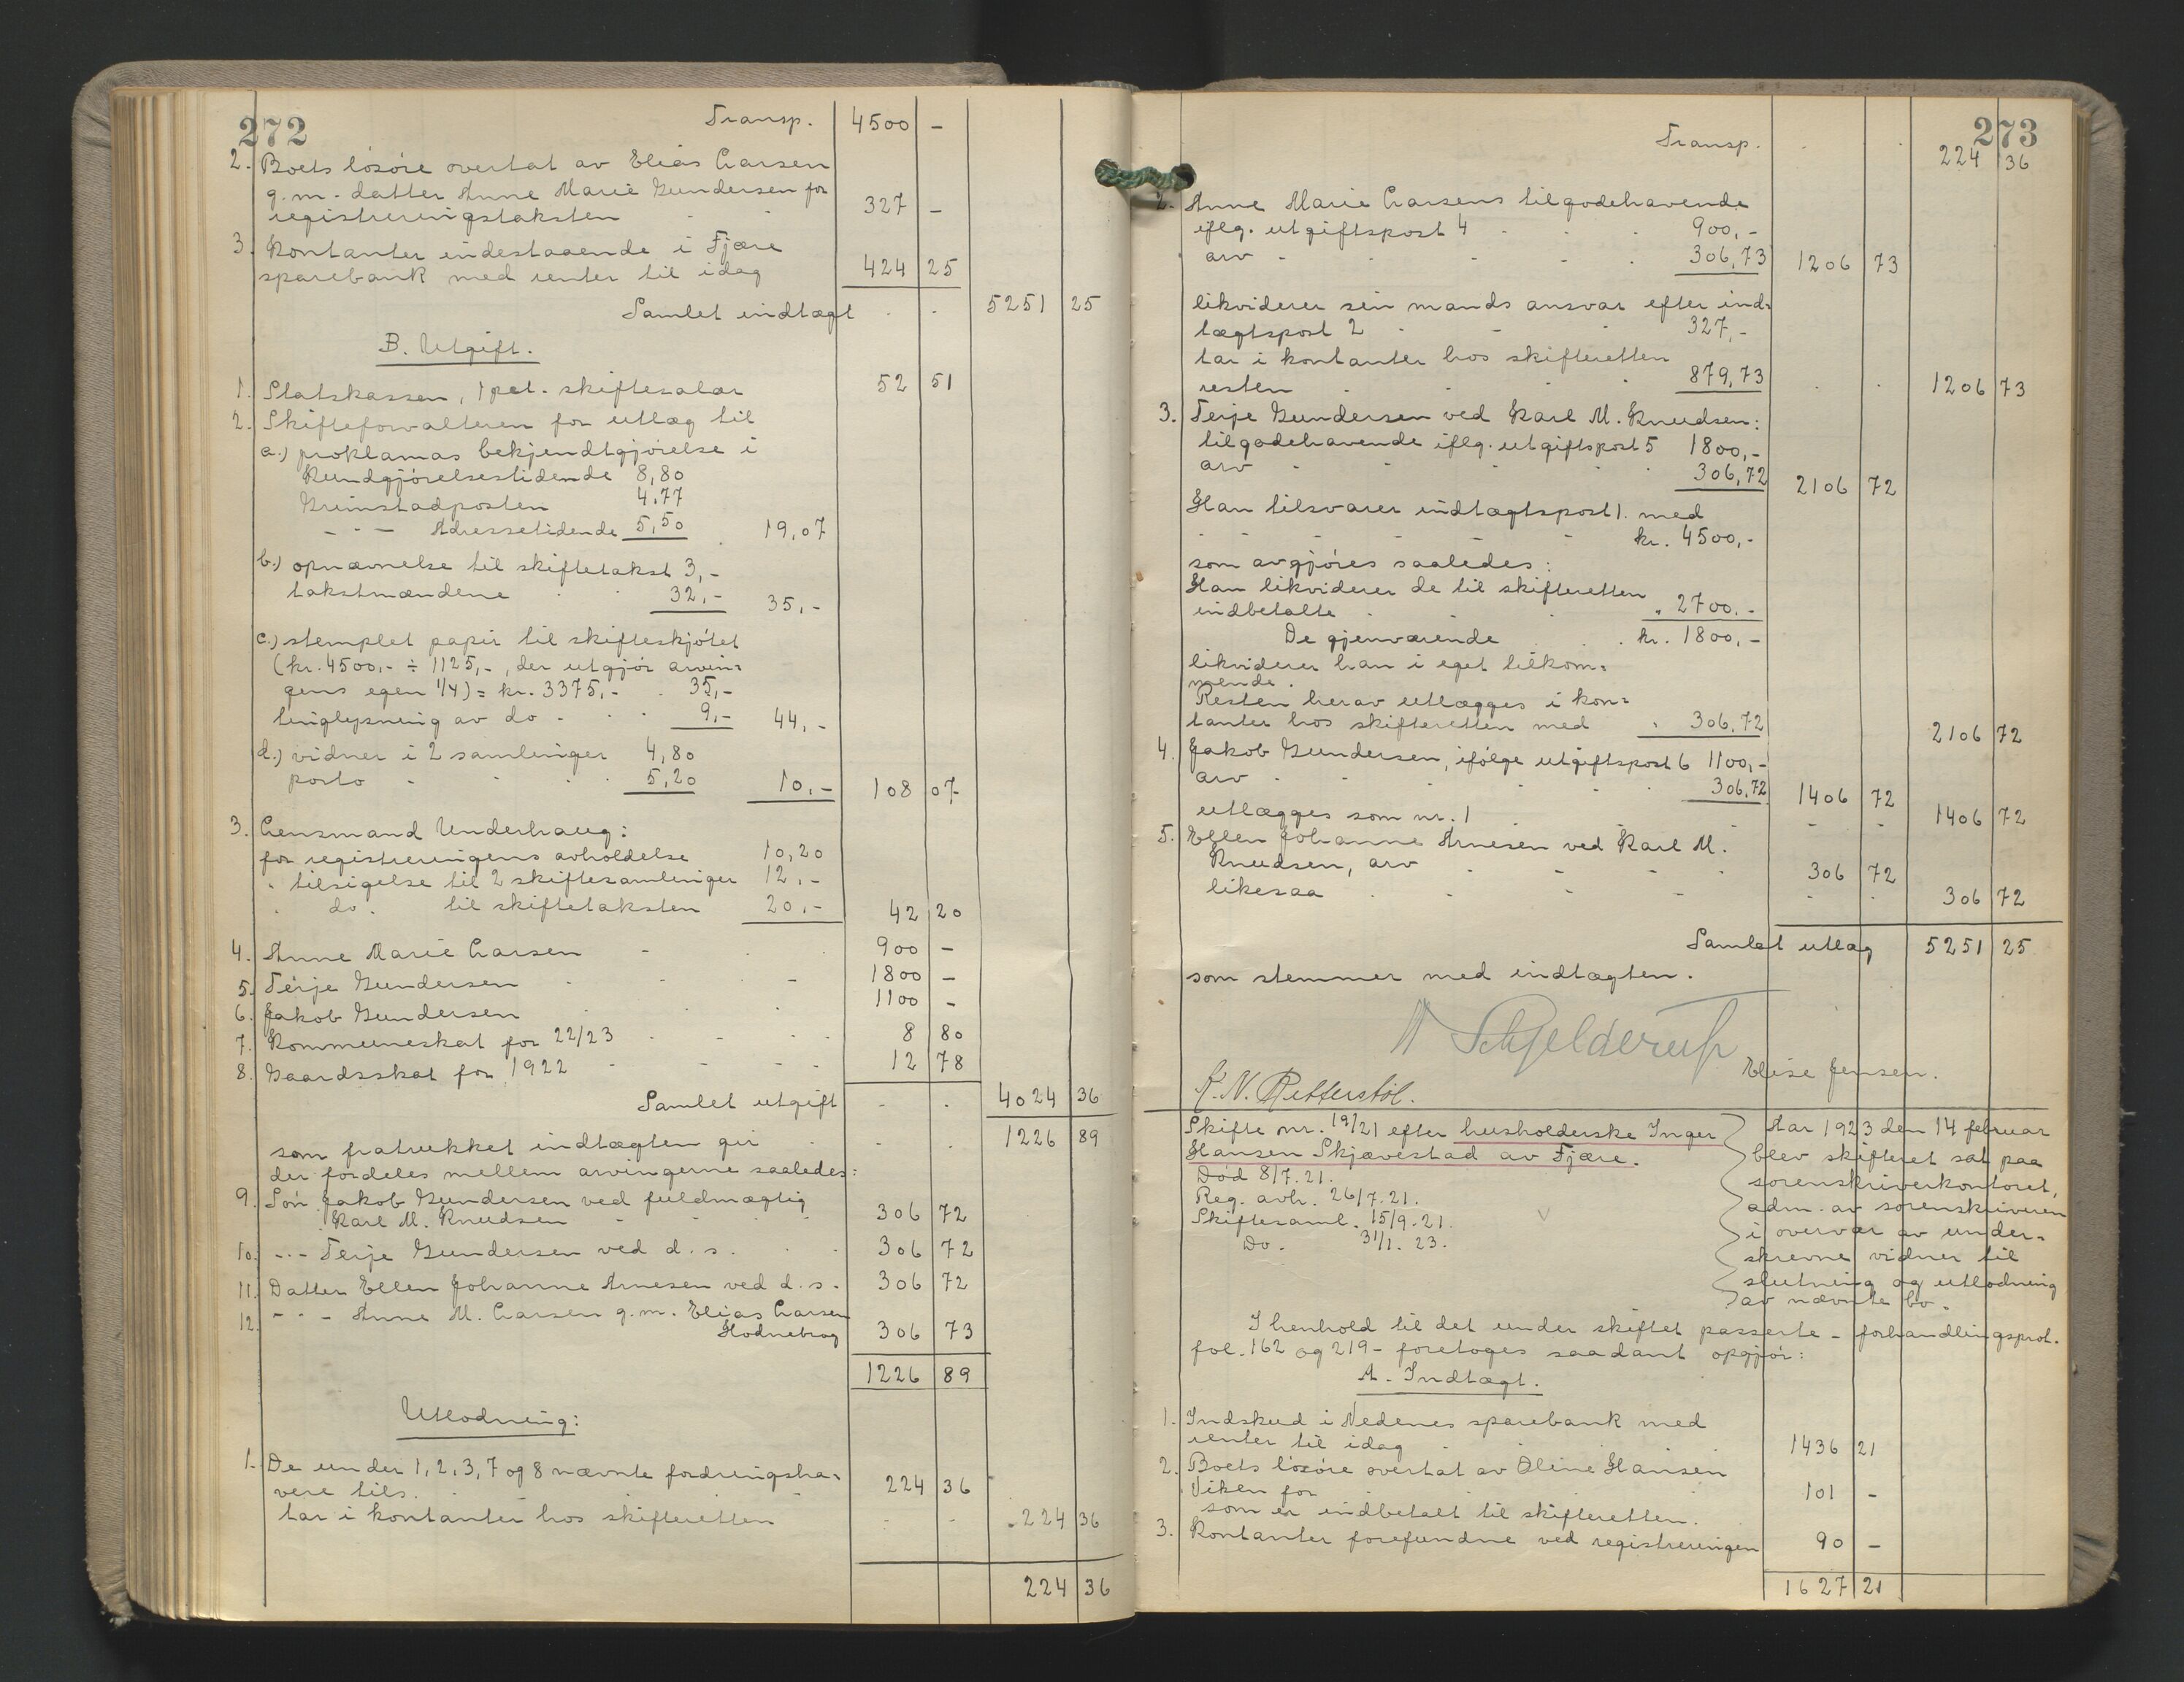 272
Transp. 4500 -
2. Boets løsøre overtat av Elias Larsen
g.m. datter Anne Marie Gundersen for
registreringstaksten 327 -
3. Kontanter indestaaende i Fjære
sparebank med renter til idag 424 25
Samlet indtægt 5251 25
B. Utgift.
1. Statskassen, 1 pct. skiftesalær 52 51
2. Skifteforvalteren for utlæg til
a.) proklamas bekjendtgjørelse i
Kundgjørelsestidende 8,80
Grimstadposten 4.77
- " - Adressetidende 5,50 19,07
b.) opnævnelse til skiftetakst 3,-
takstmændene 32,- 35,-
c.) stemplet papir til skifteskjøtet
(kr. 4500,- ÷ 1125,-, der utgjør arvin-
gens egen 1/4) = kr. 3375,- 35,-
tinglysning av do - 9,- 44,-
d.) vidner i 2 samlinger 4,80
porto 5,20 10,- 108 07
3. Lensmand Underhaug:
for registreringens avholdelse 10,20
" tilsigelse til 2 skiftesamlinger 12,-
" do. til skiftetaksten 20,- 42 20
4. Anne Marie Larsen 900 -
5. Terje Gundersen 1800 -
6. Jakob Gundersen 1100 -
7. Kommuneskat for 22/23 8 80
8. Gaardsskat for 1922 12 78
Samlet utgift 4024 36
som fratrukket indtægten gir 1226 89
der fordeles mellem arvingerne saaledes:
9. Søn Jakob Gundersen ved fuldmægtig
Karl M. Knudsen 306 72
10. - " - Terje Gundersen ved d. s. 306 72
11. Datter Ellen Johanne Arnesen ved d. s. 306 72
12. - " - Anne M. Larsen g.m. Elias Larsen
Hodnebrog 306 73
1226 89
Utlodning:
1. De under 1, 2, 3, 7 og 8 nævnte fordringsha-
vere tils. 224 36
tar i kontanter hos skifteretten 224 36
224 36
273
Transp. 224 36
2. Anne Marie Larsens tilgodehavende
iflg. utgiftspost 4 900,-
arv 306,73 1206 73
likviderer sin mands ansvar efter ind-
tægtspost 2 327,-
tar i kontanter hos skifteretten
resten 879,73 1206 73
3. Terje Gundersen ved Karl M. Knudsen:
tilgodehavende iflg. utgiftspost 5 1800,-
arv 306,72 2106 72
Han tilsvarer indtægtspost 1. med
kr. 4500,-
som avgjøres saaledes:
Han likviderer de til skifteretten
indbetalte " 2700.-
De gjenværende kr. 1800,-
likviderer han i eget tilkom-
mende.
Resten herav utlægges i kon-
tanter hos skifteretten med " 306,72 2106 72
4. Jakob Gundersen, ifølge utgiftspost 6 1100,-
arv 306,72 1406 72
utlægges som nr. 1 1406 72
5. Ellen Johanne Arnesen ved Karl M.
Knudsen, arv 306 72
likesaa 306 72
Samlet utlæg 5251 25
som stemmer med indtægten.
Schjelderup
Elise Jensen.
K. N. Retterstøl.
Skifte nr. 19/21 efter husholderske Inger
Hansen Skjævestad av Fjære.
Død 8/7. 21.
Reg. avh. 26/7. 21.
Skiftesaml. 15/9. 21.
Do. 31/1. 23.
Aar 1923 den 14 februar
blev skifteret sat paa
sorenskriverkontoret,
adm. av sorenskriveren
i overvær av under-
skrevne vidner til
slutning og utlodning
av nævnte bo.
I henhold til det under skiftet passerte - forhandlingsprot.
fol. 162 og 219 - foretoges saadant opgjør:
A. Indtægt.
1. Indskud i Nedenes sparebank med
renter til idag 1436 21
2. Boets løsøre overtat av Oline Hansen
Viken for 101 -
som er indbetalt til skifteretten.
3. Kontanter forefundne ved registreringen 90 -
1627 21